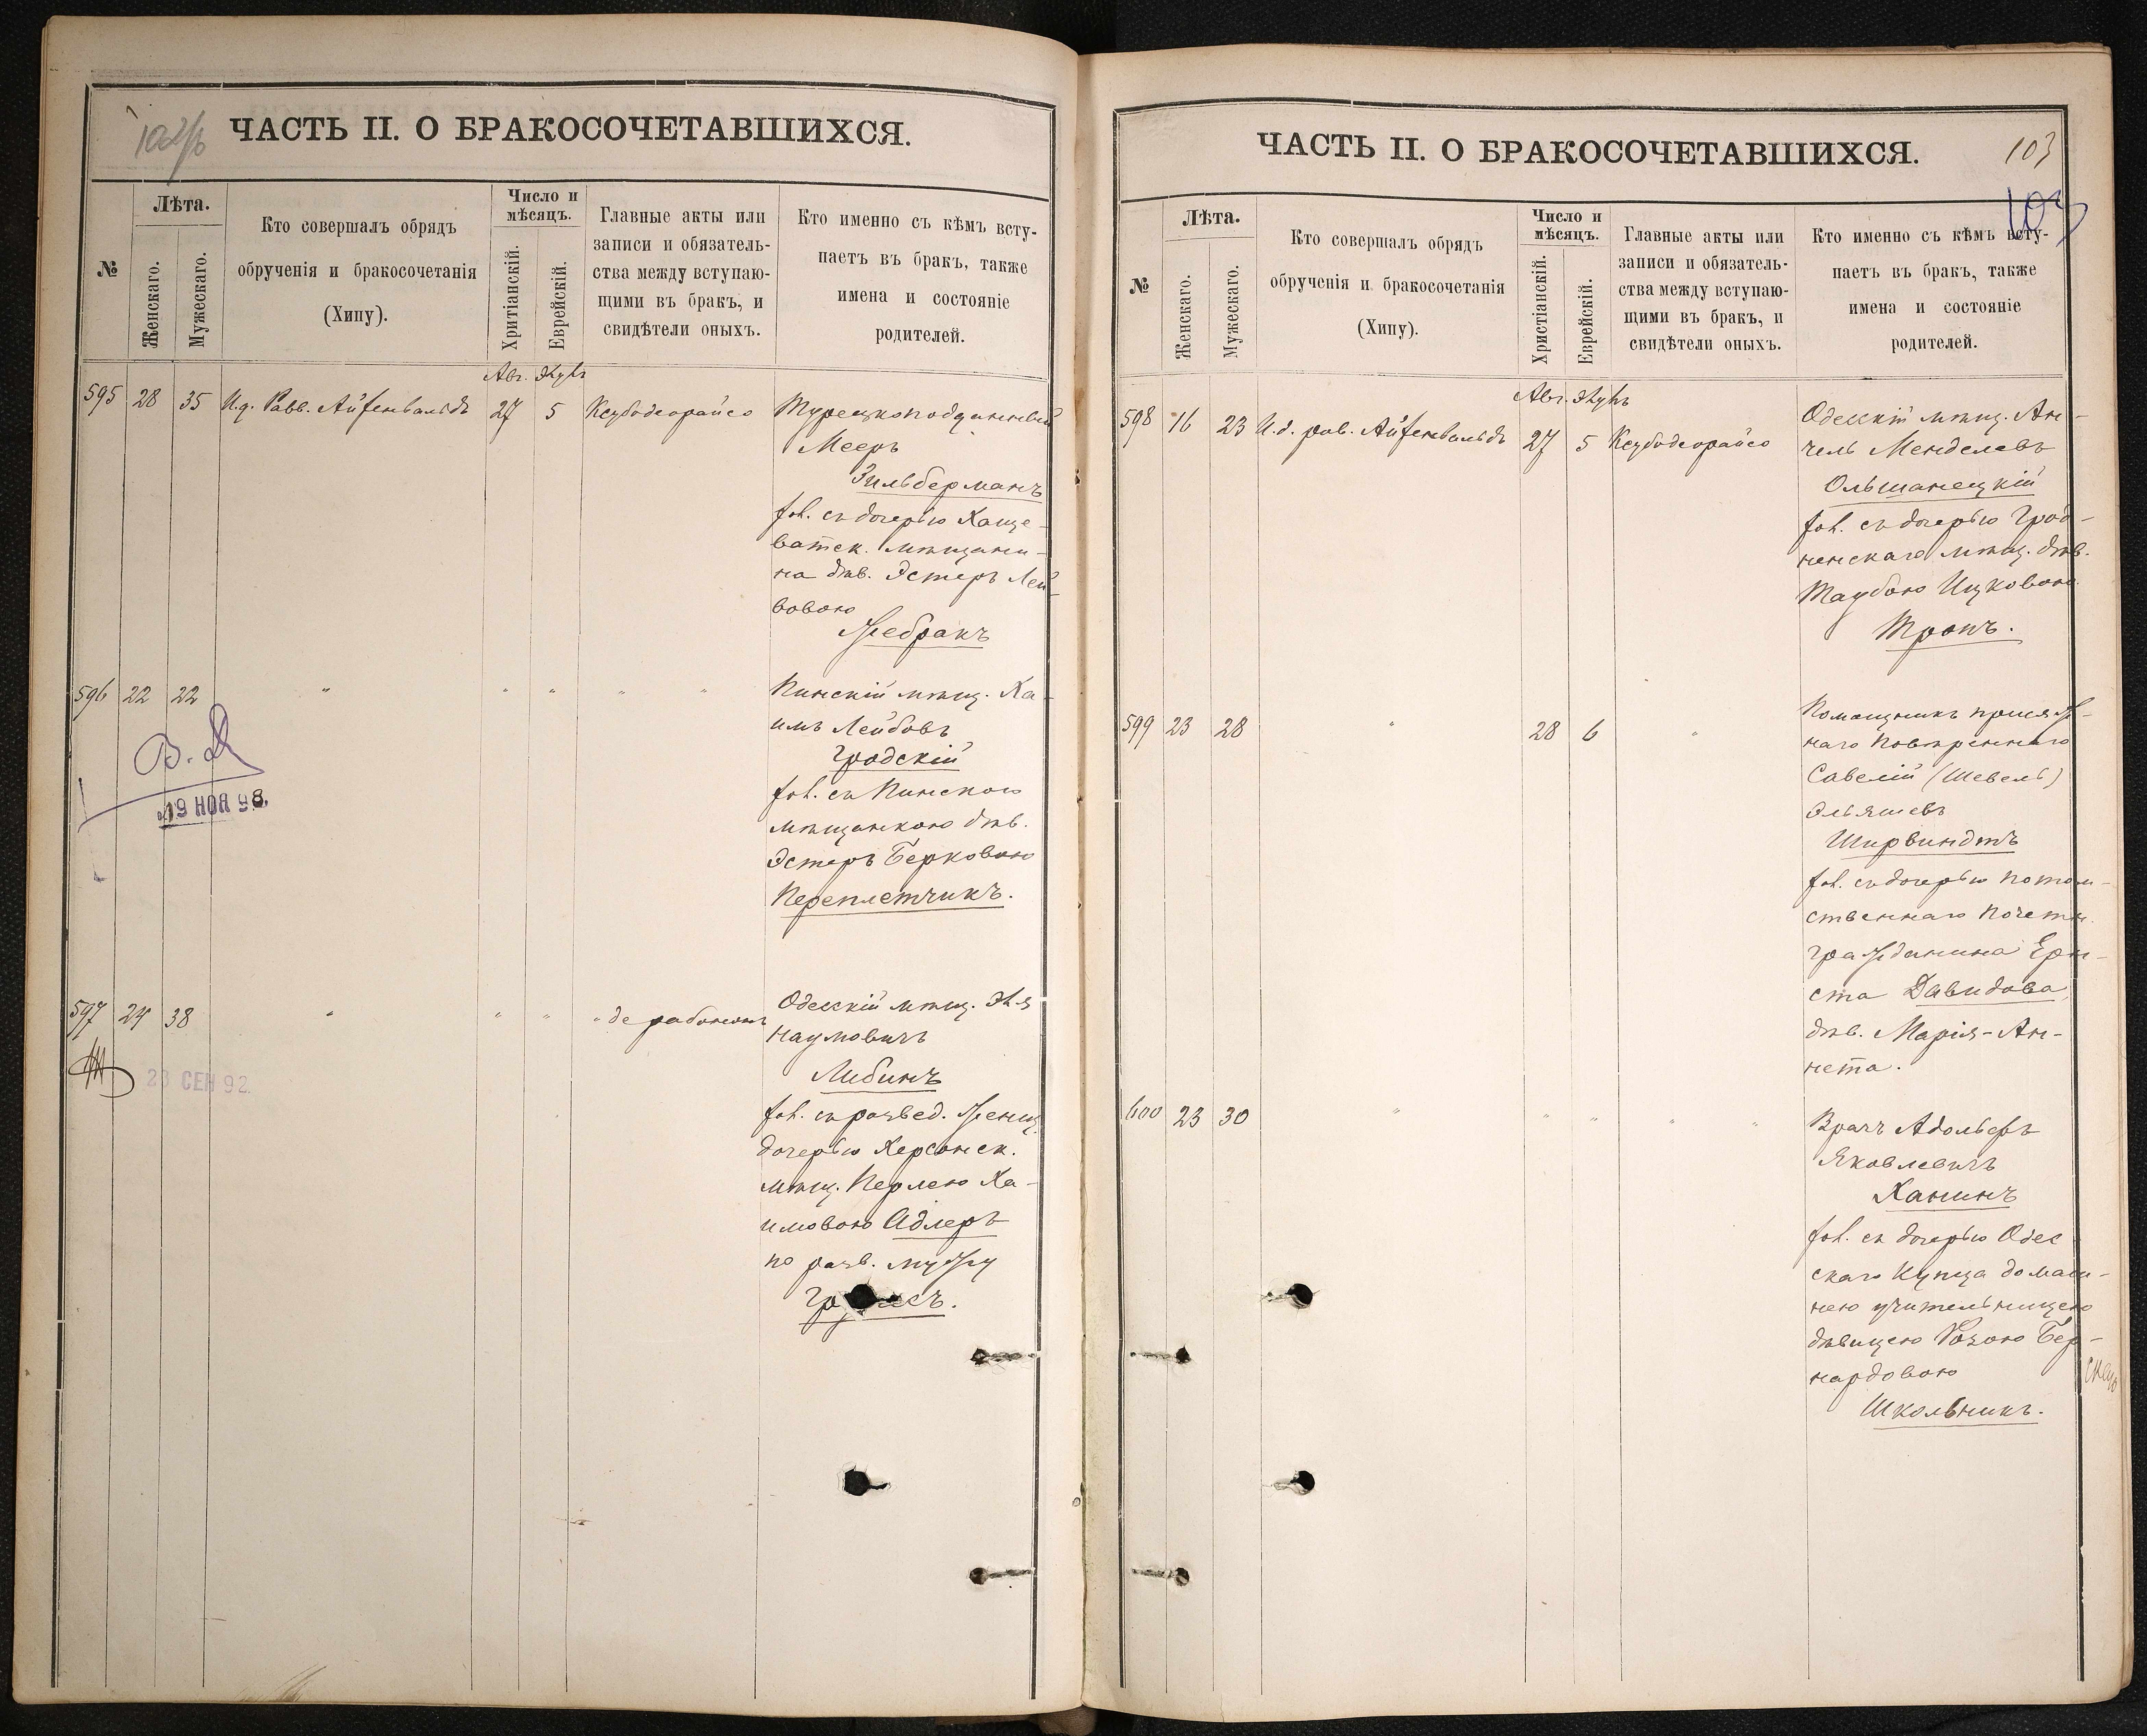 ЧАСТЬ II. О БРАКОСОЧЕТАВШИХСЯ.
№
Лѣта.
Женскаго.
Мужескаго.
Кто совершалъ обрядъ
обрученія и бракосочетанія
(Хипу).
Число и
мѣсяцъ.
Хритіанскій.
Еврейскій.
Главные акты или
записи и обязатель-
ства между вступаю-
щими въ бракъ, и
свидѣтели оныхъ.
Кто именно съ кѣмъ всту-
паетъ въ бракъ, также
имена и состояніе
родителей.
Авг. Элулъ
595 28 35 И.д. Равв. Айзенвальдъ 27 5 Ксубодеорайсо
Турецкоподданный
Мееръ
Зильберманъ
хол. съ дочерью Хаще-
ватск. мѣщани-
на дѣв. Эстеръ Лей-
бовою
Жебракъ
596 22 22 " " " " "
Пинскій мѣщ. Ха-
имъ Лейбовъ
Гродскій
хол. съ Пинскою
мѣщанкою дѣв.
Эстеръ Берковою
Переплетчикъ.
В. Д
19 НОЯ 98.
597 24 38 " " " " дерабононъ
Одесскій мѣщ. Эля
Наумовичъ
Либинъ
хол. съ развед. женщ.
дочерью Херсонск.
мѣщ. Перлею Ха-
имовою Адлеръ
по разв. мужу
23 СЕН 92.
ЧАСТЬ II. О БРАКОСОЧЕТАВШИХСЯ.
103
103
№
Лѣта.
Женскаго.
Мужескаго.
Кто совершалъ обрядъ
обрученія и бракосочетанія
(Хипу).
Число и
мѣсяцъ.
Христіанскій.
Еврейскій.
Главные акты или
записи и обязатель-
ства между вступаю-
щими въ бракъ, и
свидѣтели оныхъ.
Кто именно съ кѣмъ всту-
паетъ въ бракъ, также
имена и состояніе
родителей.
Авг. Элулъ
598 16 23 И.д. рав. Айзенвальдъ 27 5 Ксубодеорайсо
Одесскій мѣщ. Ан-
чель Менделевъ
Ольшанецкій
хол. съ дочерью Грод-
ненскаго мѣщ. дѣв.
Таубою Ицковою
Тропъ.
599 23 28 " 28 6 "
Помощникъ присяж-
наго повѣреннаго
Савелій (Шевель)
Эльяшевъ
Ширвиндтъ
хол. съ дочерью потом-
ственнаго почетн.
гражданина Ерн-
ста Давидова,
дѣв. Марія-Ан-
нета.
600 23 30 " " " " "
Врачъ Адольфъ
Яковлевичъ
Ханинъ
хол. съ дочерью Одес
скаго Купца домаш-
нею учительницею
дѣвицею Розою Бер-
нардовою
Школьникъ.